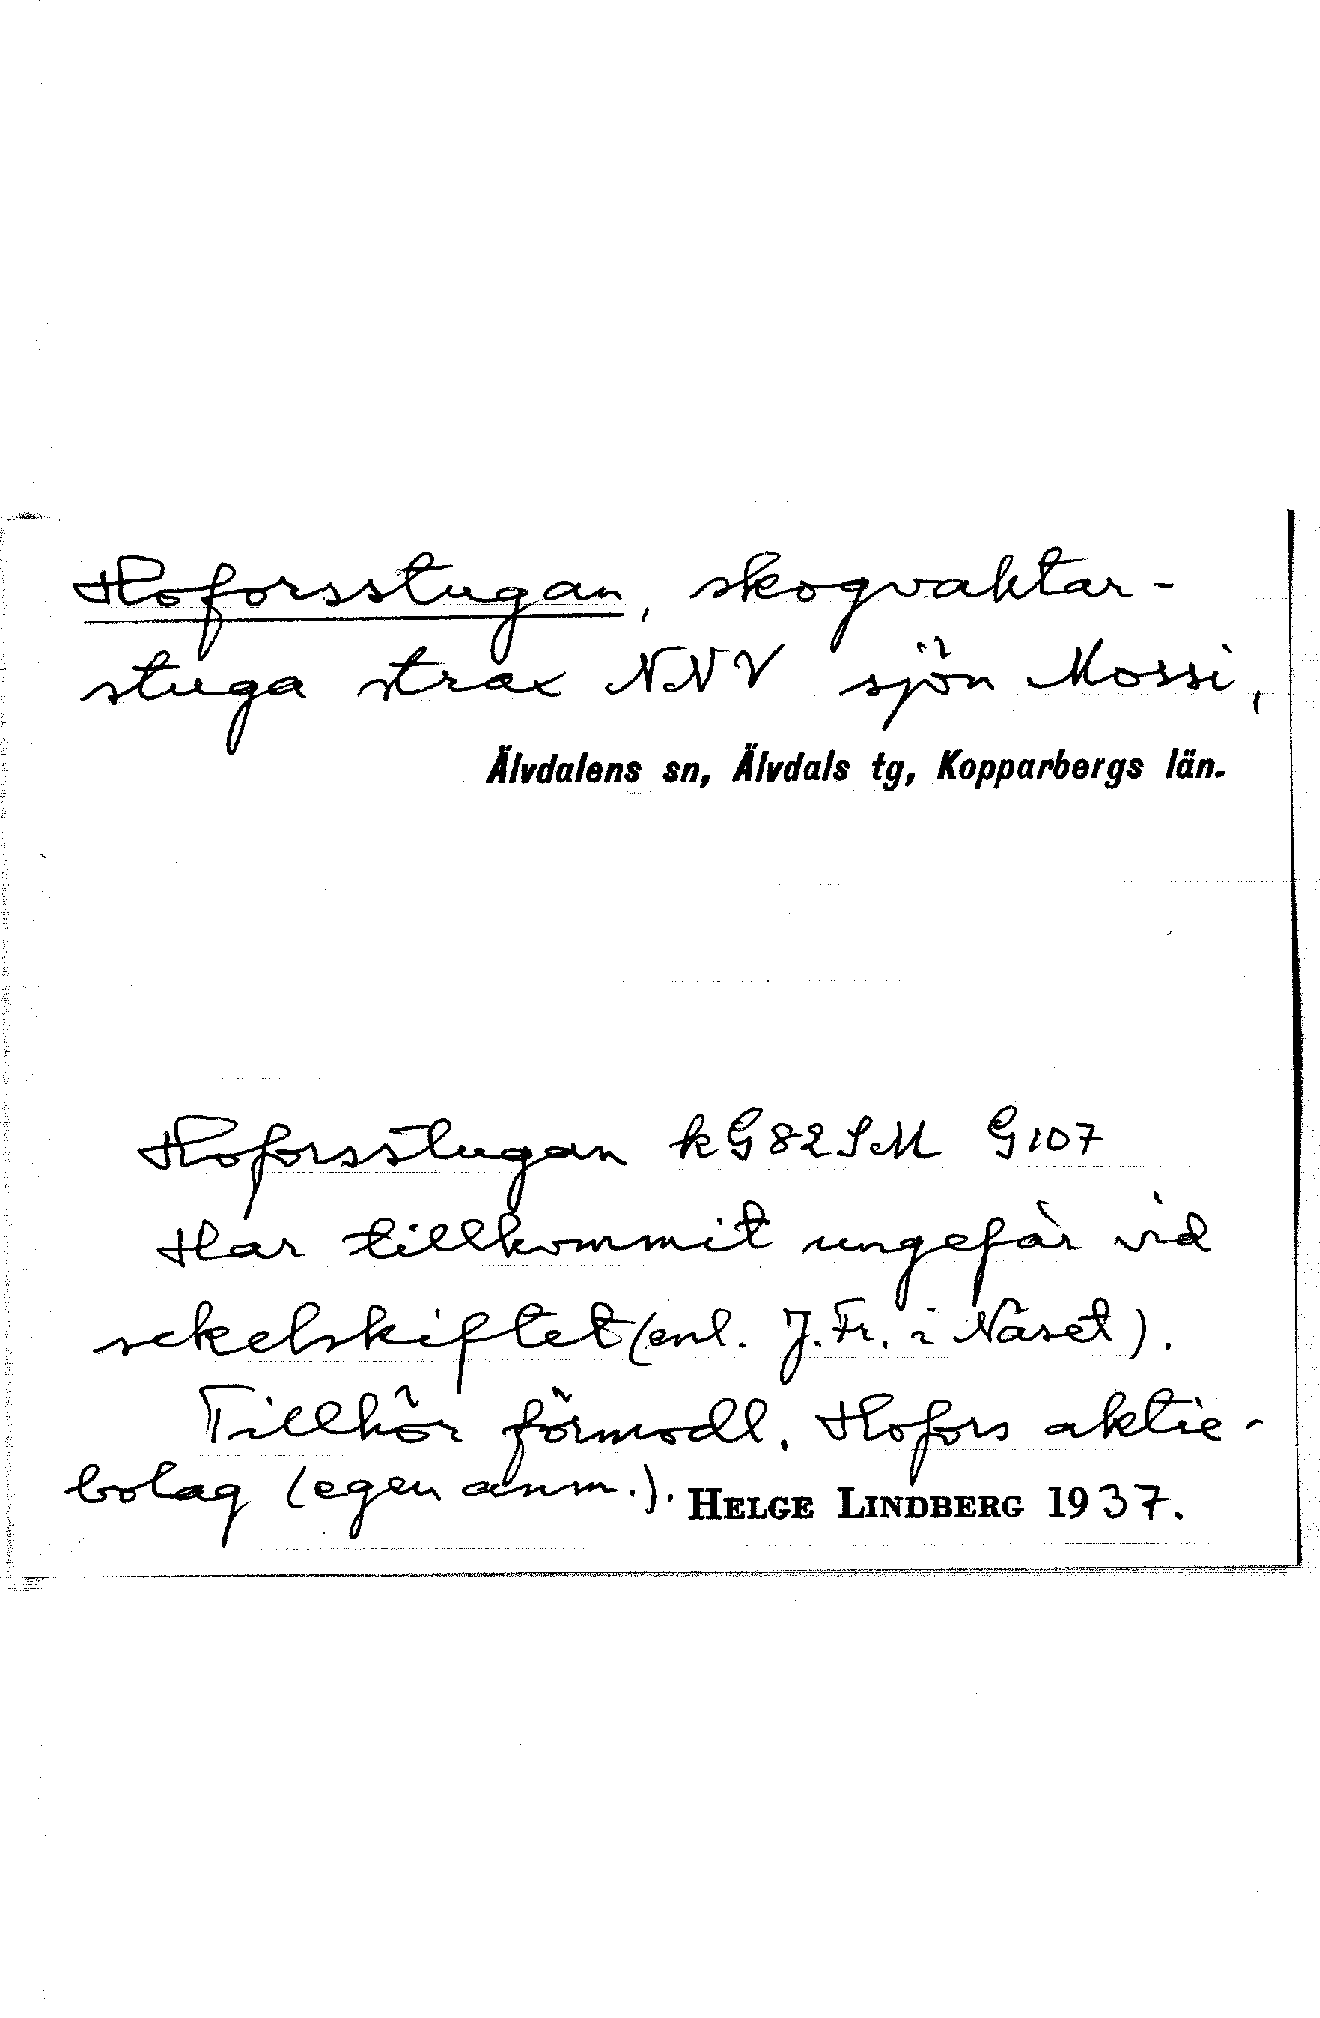 Hoforsstugan, skogvaktar-
stuga strax NNV sjön Mossi,
Älvdalens sn, Älvdals tg, Kopparbergs län.
Hoforsstugan kG82SM G107
Har tillkommit ungefär vid
sekelskiftet (enl. J. Fr. i Näset).
Tillhör förmodl. Hofors aktie-
bolag (egen anm.). HELGE LINDBERG 1937.